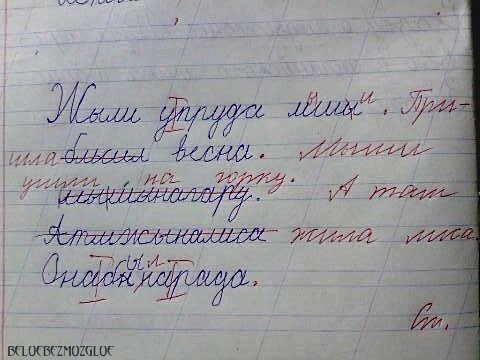 Жыли упруда мишы и. При-
шла бжил весна. Мыши
ушли на горку.
мышынагару. А там
Атмжыналиса жила лиса.
Онабон был рада.
См.
BELOEBEZMOZGLOE